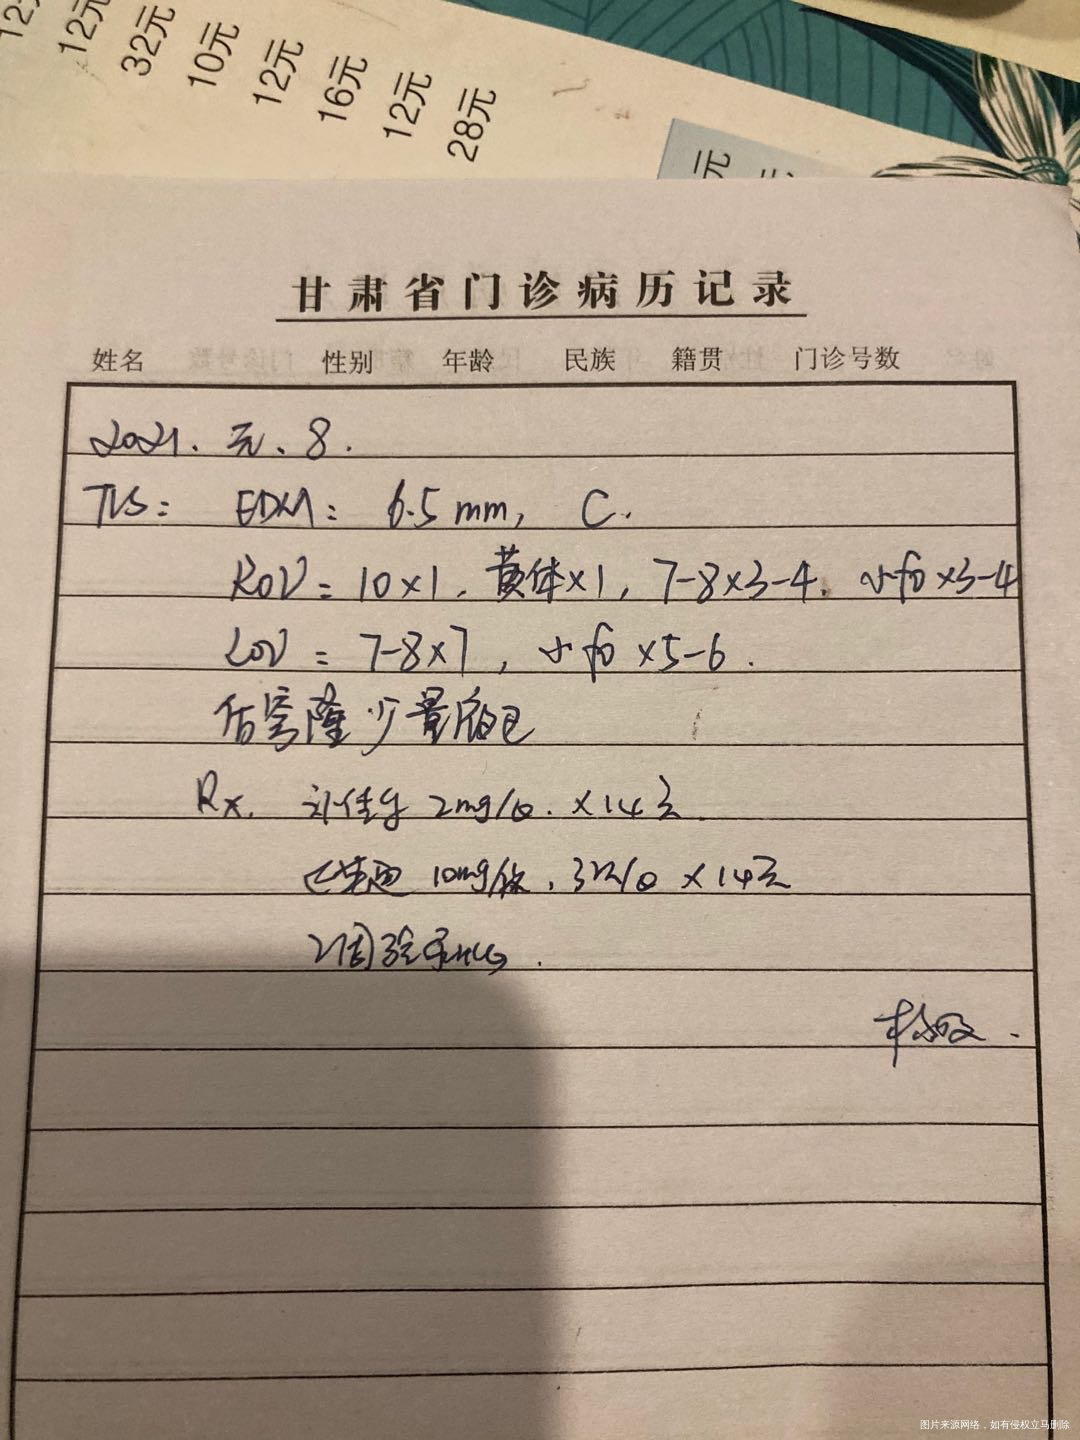 12元
12元
32元
10元
12元
16元
12元
28元
元
甘肃省门诊病历记录
姓名 性别 年龄 民族 籍贯 门诊号数
2021. 元. 8.
TVS: EDM: 6.5mm, C.
ROV = 10×1. 黄体×1, 7-8×3-4. 小fo×3-4
LOV = 7-8×7, 小fo×5-6.
后穹隆少量液
Rx. 补佳乐 2mg/日. ×14天.
达芙通 10mg/次, 2次/日 ×14天
2周验尿HCG.
图片来源网络，如有侵权立马删除